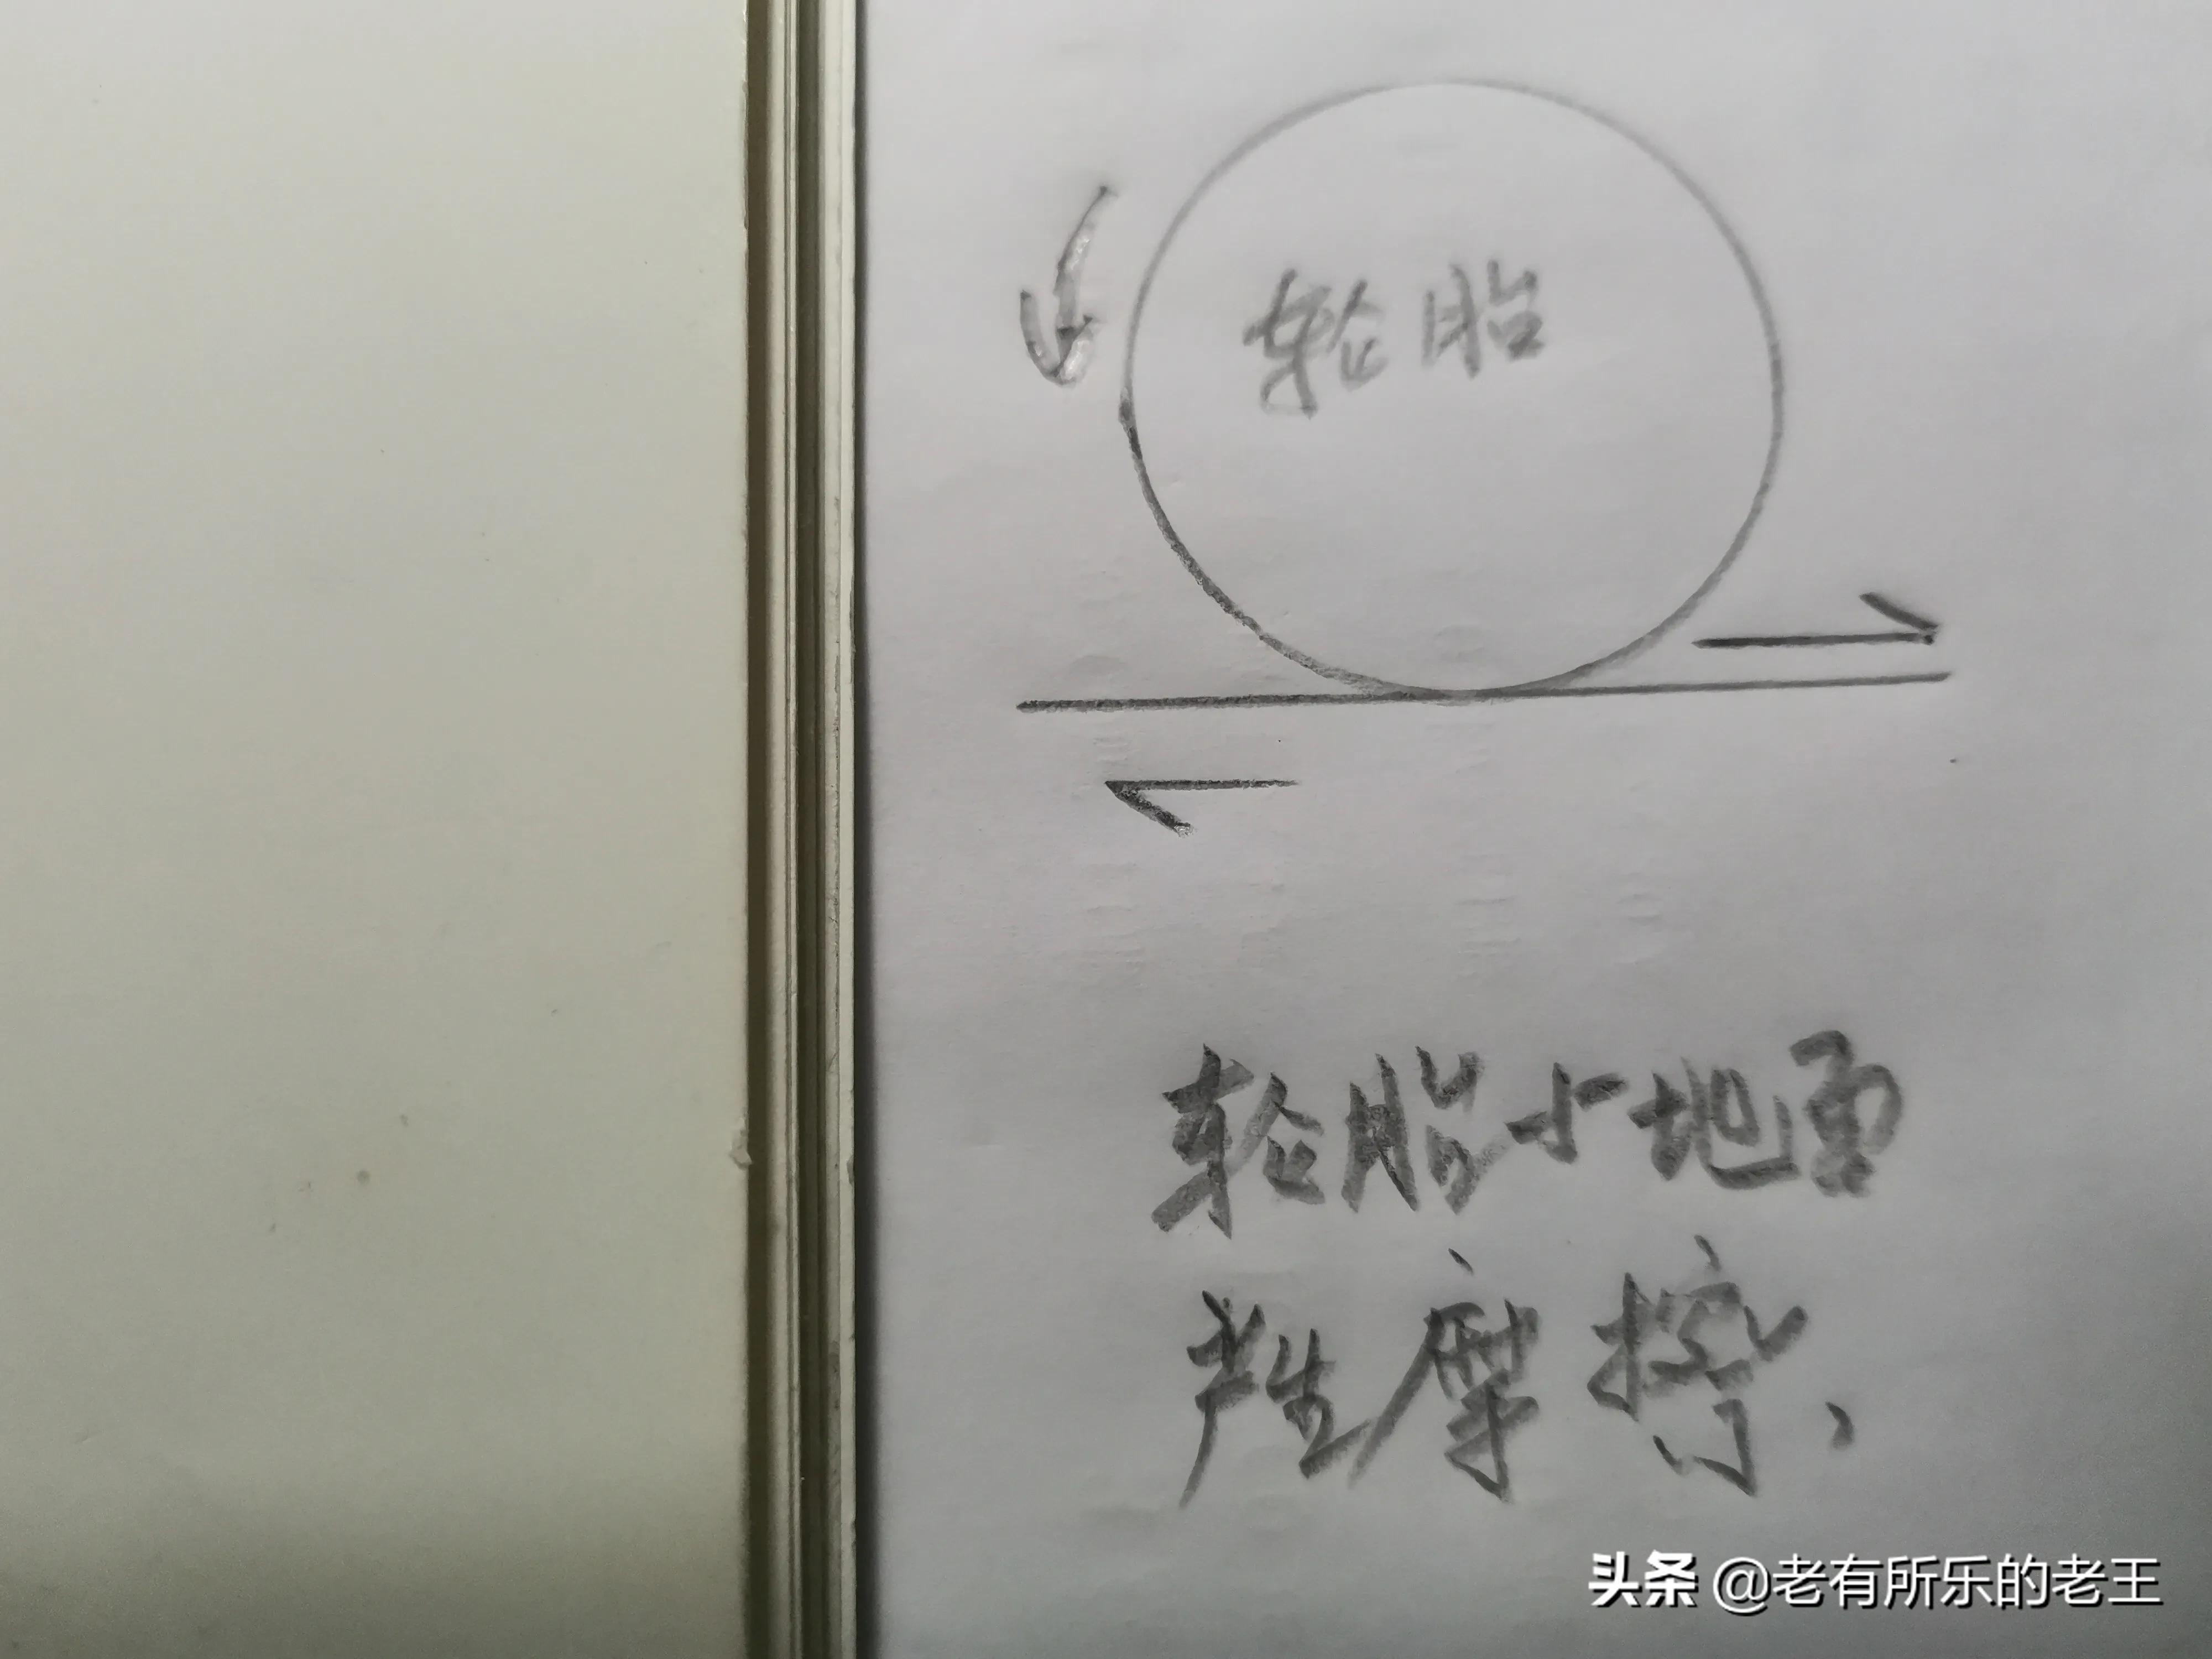 轮胎
轮胎与地面
产生摩擦、
头条 @老有所乐的老王